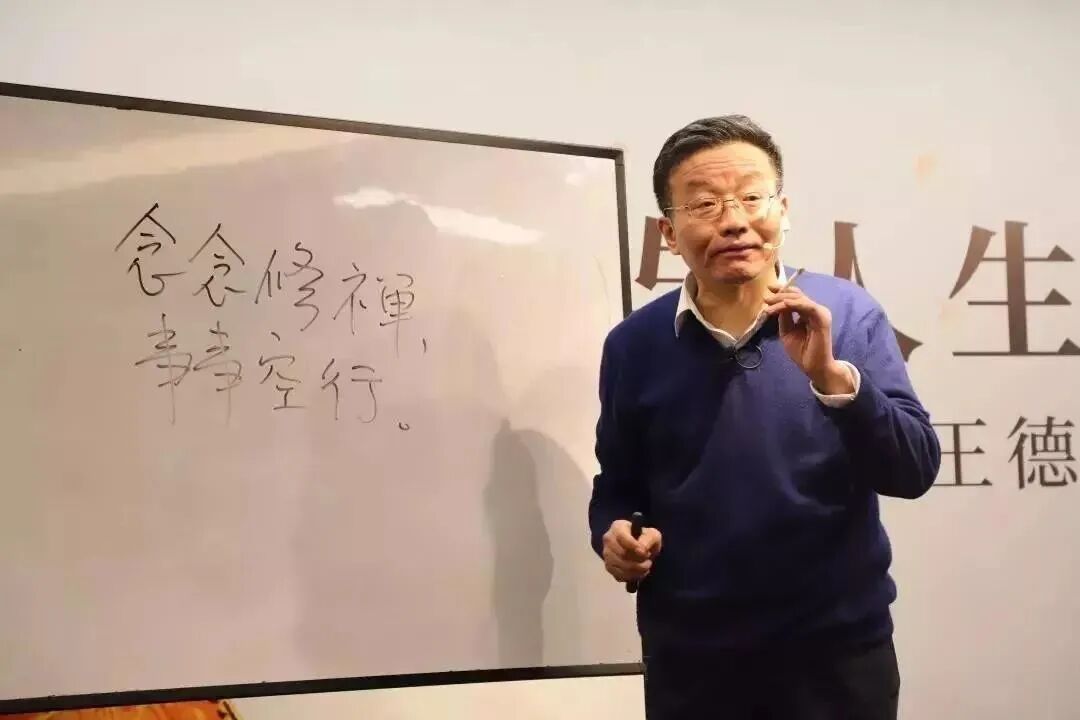 念念修禪,
事事空行。
人生
王德